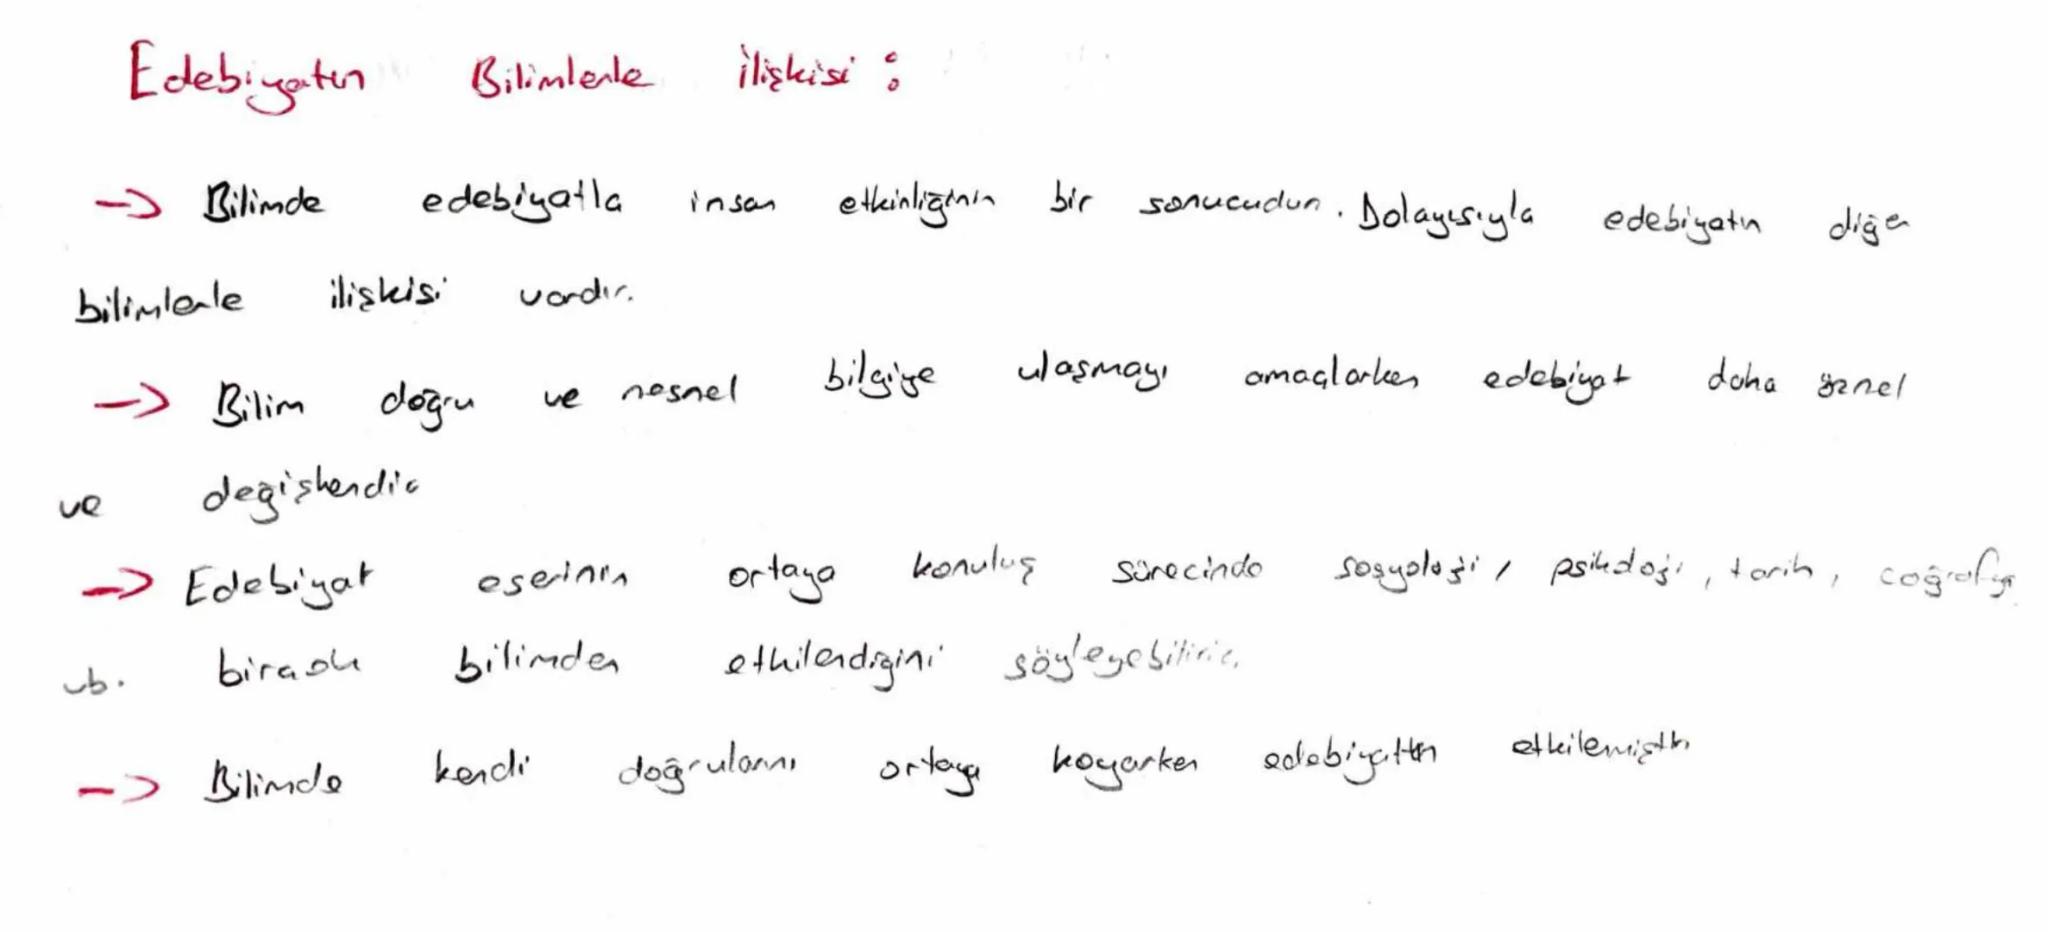 Edebiyatın Bilimlerle ilişkisi :
→ Bilimde edebiyatla insan etkinliğinin bir sonucudur. Dolayısıyla edebiyatın diğer
bilimlerle ilişkisi vardır.
→ Bilim doğru ve nesnel bilgiye ulaşmayı amaçlarken edebiyat daha öznel
ve değişkendir
→ Edebiyat eserinin ortaya konuluş sürecinde sosyoloji, psikoloji, tarih, coğrafya
vb. birçok bilimden etkilendiğini söyleyebiliriz.
→ Bilimde kendi doğrularını ortaya koyarken edebiyattan etkilemiştir